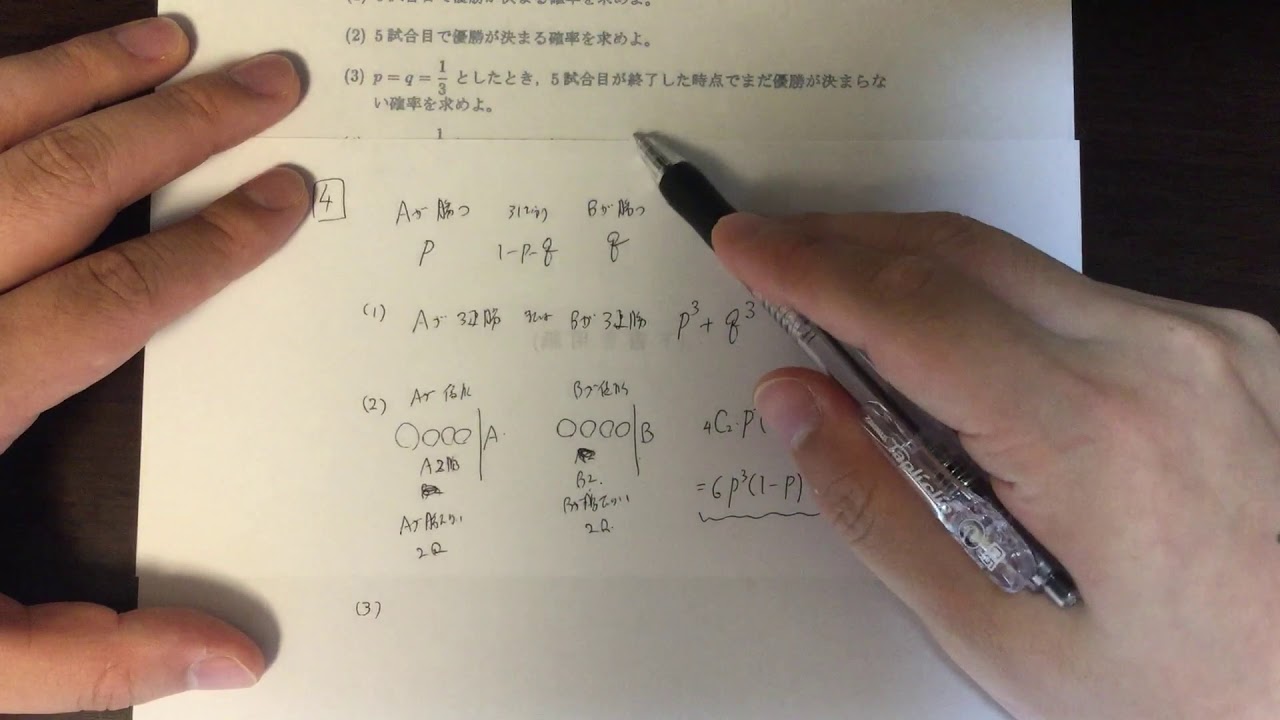 (2) 5試合目で優勝が決まる確率を求めよ。
(3) p = q = 1/3 としたとき，5試合目が終了した時点でまだ優勝が決まらな
い確率を求めよ。
1
4
Aが勝つ 引き分け Bが勝つ
p 1-p-q q
(1) Aが3連勝 または Bが3連勝 p³+q³
(2) Aが優勝 Bが優勝
A B ₄C₂・p
A2勝 B2.
Aが勝てない Bが勝てない
2回 2回
=6p³(1-p)
(3)